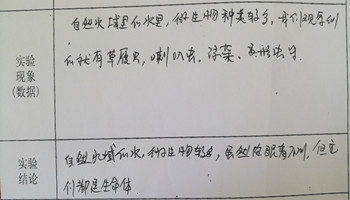 自然水域里的水里,微生物种类较多,我们观察到
的就有草履虫,喇叭虫、绿藻、变形虫等
实验
现象
(数据)
自然水域的水,微生物较多,虽然肉眼看不到,但它
们都是生命体.
实验
结论